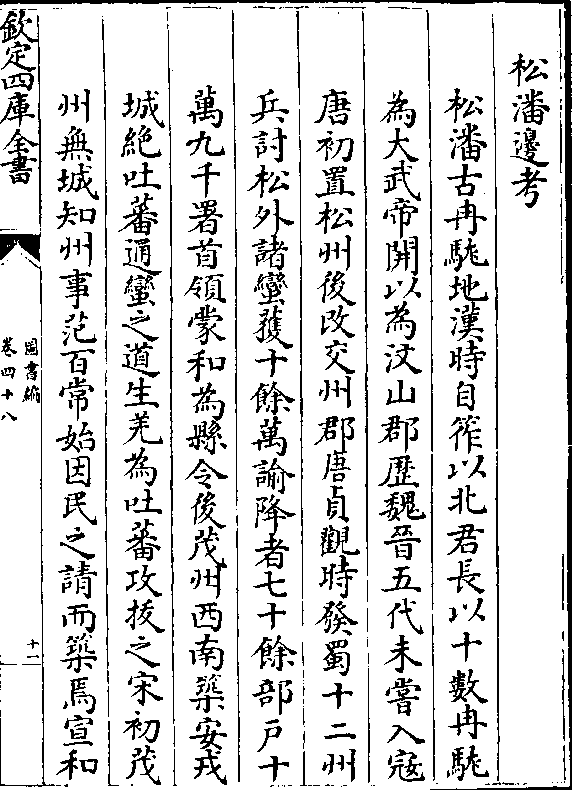 松潘邊考
松潘古冉駹地漢時自筰以北君長以十數冉駹
為大武帝開以為汶山郡歴魏晉五代未嘗入寇
唐初置松州後改交州郡唐貞觀時發蜀十二州
兵討松外諸蠻獲十餘萬諭降者七十餘部户十
萬九千署首領蒙和為縣令後茂州西南築安戎
城絶吐蕃通蠻之道生羌為吐蕃攻拔之宋初茂
州無城知州事范百常始因民之請而築焉宣和
欽定四庫全書
圖書編
卷四十八
十一